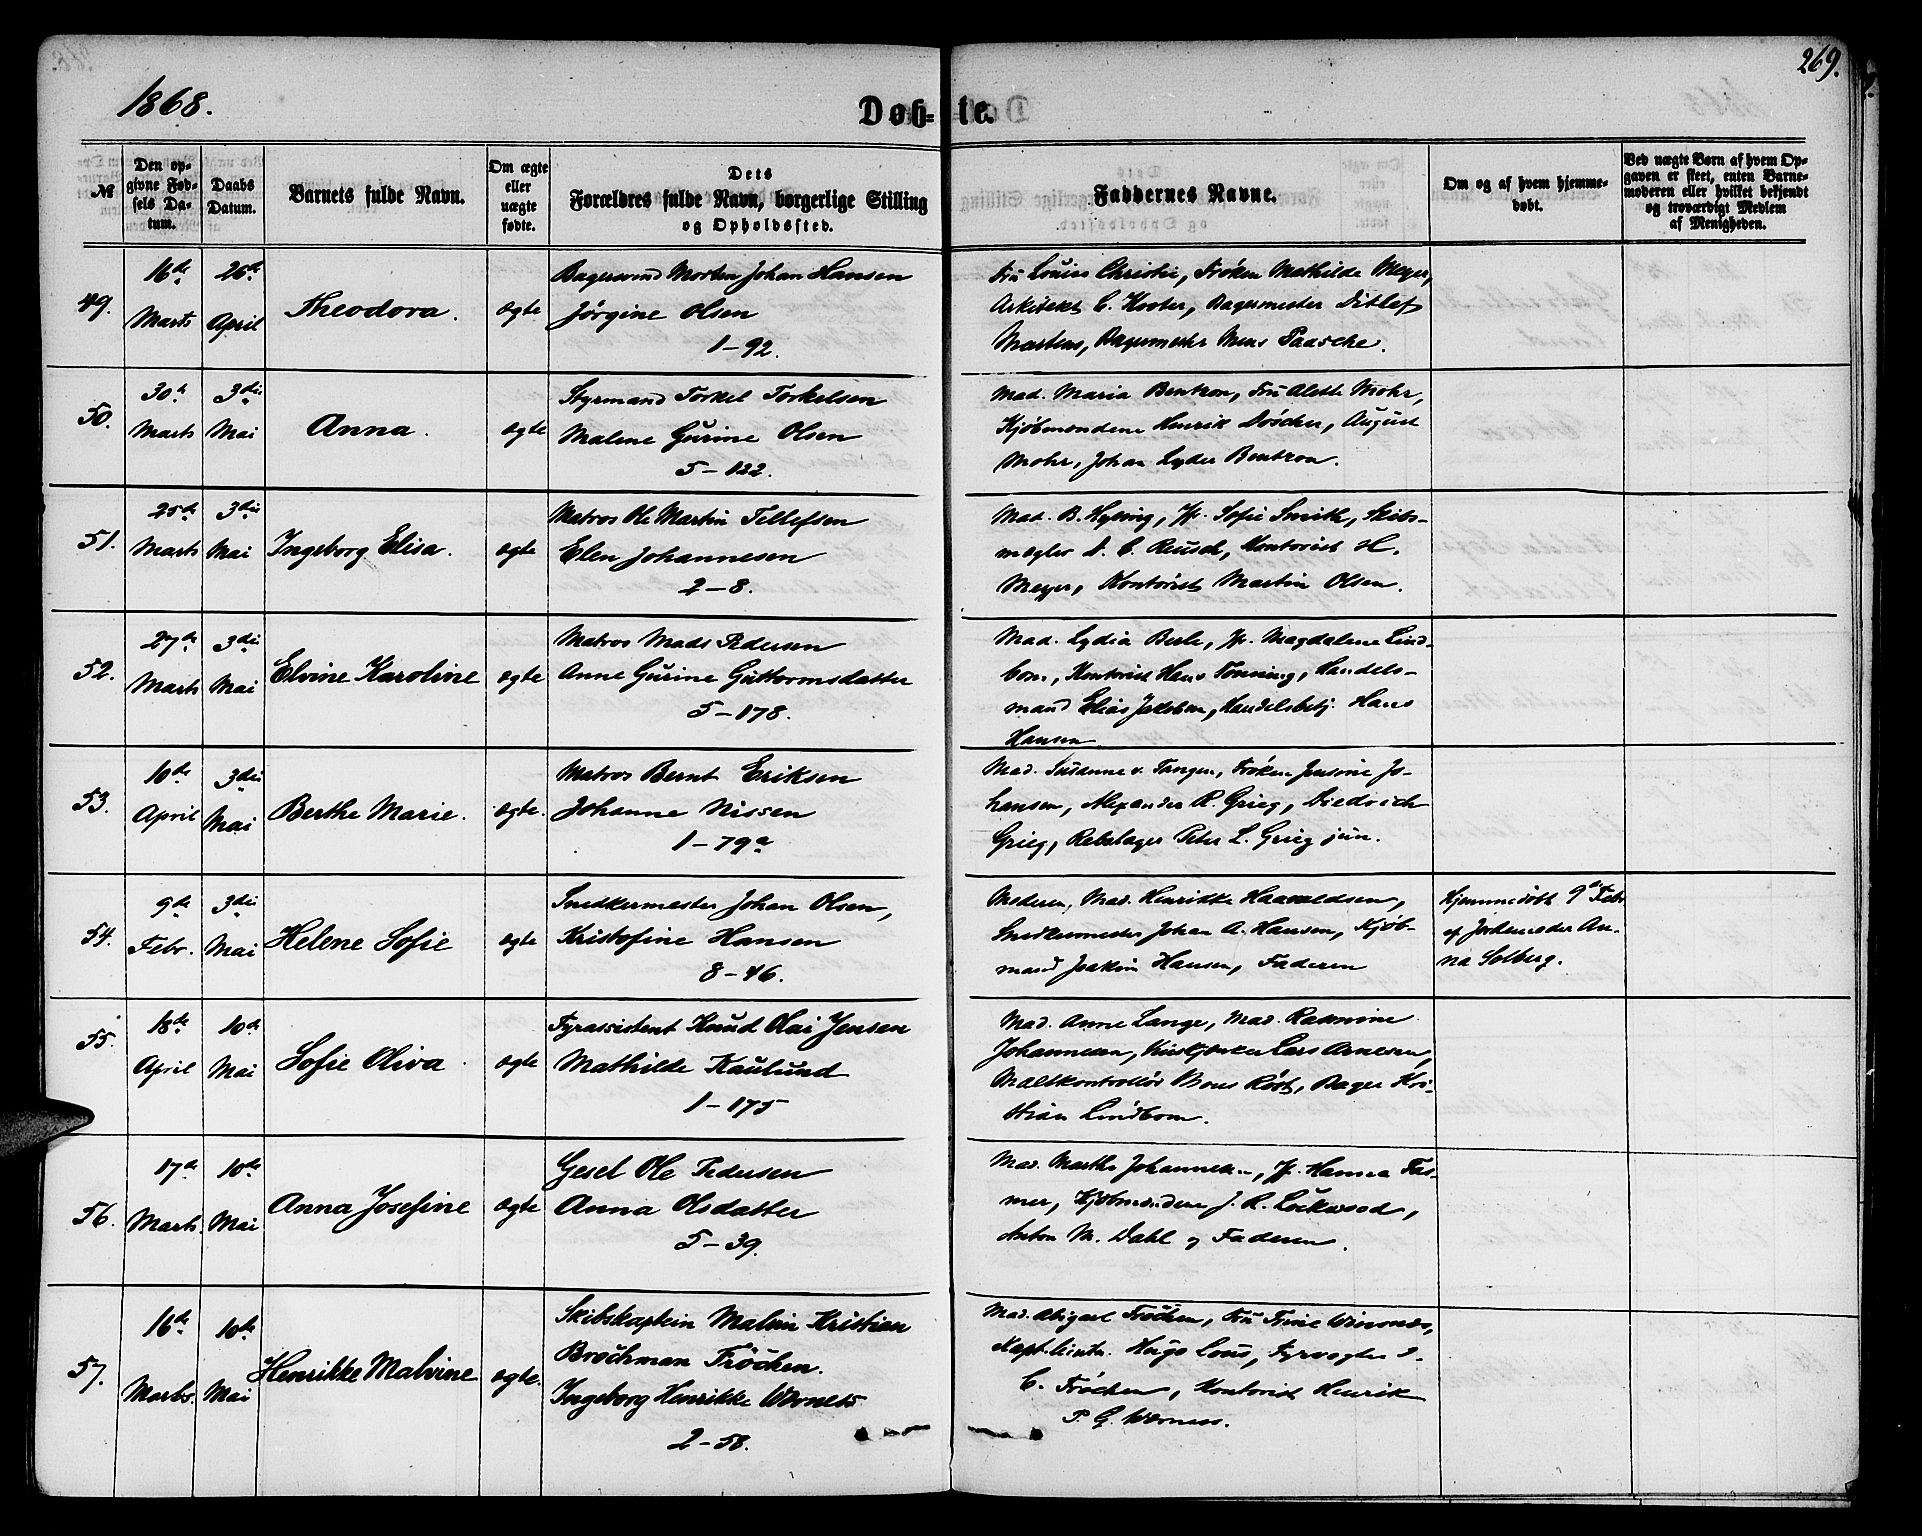 1868.
Døbte.
269.
№
Den opgivne Fødsels Datum.
Daabs Datum.
Barnets fulde Navn.
Om ægte eller uægte fødte.
Dets Forældres fulde Navn, borgerlige Stilling og Opholdssted.
Faddernes Navne.
Om og af hvem hjemmedøbt.
Ved uægte Børn af hvem Opgaven er skeet, enten Barnemoderen eller hvilket bekjendt og troværdigt Medlem af Menigheden.
49.
16de Marts
26de April
Theodora.
ægte
Bagersvend Morten Johan Hansen
Jørgine Olsen
1-92.
Fru Louise Christie, Frøken Mathilde Meyer,
Arkitekt C. Bagermester Ditlef
Martens, Bagermester Mens Paasche.
50.
30te Marts
3die Mai
Anna.
ægte
Styrmand Torkel Torkelsen
Malene Gurine Olsen
5-122.
Mad. Maria Bentzon, Fru Alette Mohr,
Kjøbmændene Henrik Døscher, August
Mohr, Johan Lyder Bentzon.
51.
25de Marts
3die Mai
Ingeborg Elisa.
ægte
Matros Ole Martin Tellefsen
Elen Johannesen
2-8.
Mad. B. Jf. Sofie Smith, Skibs-
mægler C. Reusch, Kontorist H.
Meyer, Kontorist Martin Olsen.
52.
27de Marts
3die Mai
Elvine Karoline
ægte
Matros Mads Pedersen
Anne Gurine Guttormsdatter
5-178.
Mad. Lydia Berle, Jf. Magdalene Lind-
bom, Kontorist Hans Tønning, Handels-
mand Elias Jakobsen, Handelsbetj. Hans
Hansen
53.
10de April
3die Mai
Berthe Marie.
ægte.
Matros Bernt Eriksen
Johanne Nissen
1-79a
Mad. Susanne v. Tangen, Frøken Jensine Jo-
hansen, Alexander R. Grieg, Diedrich
Grieg, Rebslager Peter L. Grieg jun.
54.
9de Febr.
3die Mai
Helene Sofie
ægte
Snedkermester Johan Olsen,
Kristofine Hansen
8-46.
Moderen, Mad. Henrikke Haavaldsen,
Snedkermester Johan A. Hansen, Kjøb-
mand Joakim Hansen, Faderen
Hjemmedøbt 9de Febr.
af Jordemoder An-
na Solberg.
55.
18de April
10de Mai
Sofie Oliva.
ægte
Fyrassistent Knud Olai Jensen
Mathilde Kaulund
1-175
Mad. Anne Lange, Mad. Rasmine
Johannesen, Lars Arnesen,
Maltkontrollør Bons Røst, Bager Kri-
stian Lindbom.
56.
17de Marts.
10de Mai
Anna Josefine
ægte
Gesel Ole Pedersen
Anna Olsdatter
5-39.
Mad. Marthe Johannesen, Jf. Hanna Fas-
mer, Kjøbmændene J. R. Lockwood,
Anton M. Dahl og Faderen.
57.
16de Marts.
10de Mai
Henrikke Malvine
ægte.
Skibskaptein Malvin Kristian
Brochman Frøchen.
Ingeborg Henrikke Werness
2-58.
Mad. Abigael Frøchen, Fru Trine Wesenes,
Kapt. Hugo Lous, Fyrvogter
C. Frøchen, Kontorist Henrik
P. G. Werness.